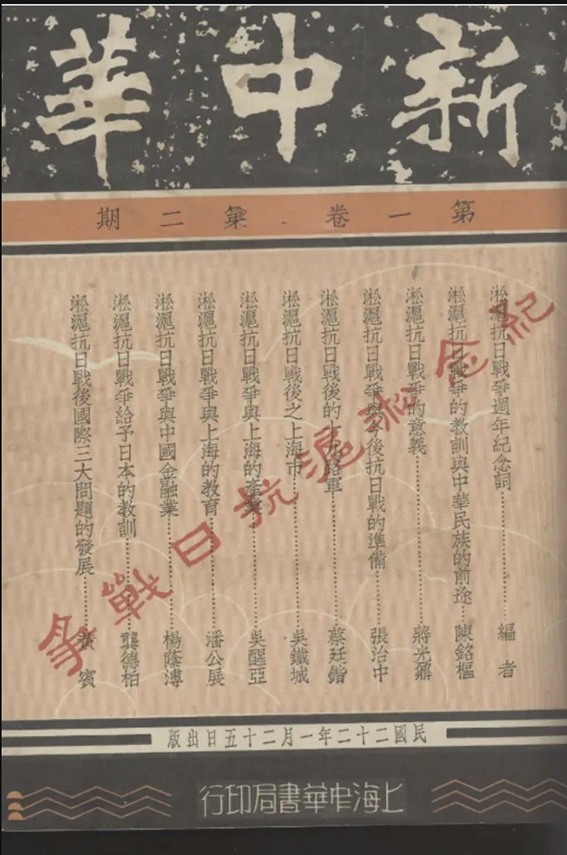 新中華
第一卷第二期
淞滬抗日戰爭週年紀念詞……編者
淞滬抗日戰爭的教訓與中華民族的前途……陳銘樞
淞滬抗日戰爭的意義……蔣光鼐
淞滬抗日戰爭與今後抗日戰的準備……張治中
淞滬抗日戰後的十九路軍……蔡廷鍇
淞滬抗日戰後之上海市……吳鐵城
淞滬抗日戰爭與上海的產業……吳醒亞
淞滬抗日戰爭與上海的教育……潘公展
淞滬抗日戰爭與中國金融業……楊蔭溥
淞滬抗日戰爭給予日本的教訓……龔德柏
淞滬抗日戰後國際三大問題的發展……黃賓
紀念淞滬抗日戰爭
民國二十二年一月二十五日出版
上海中華書局印行